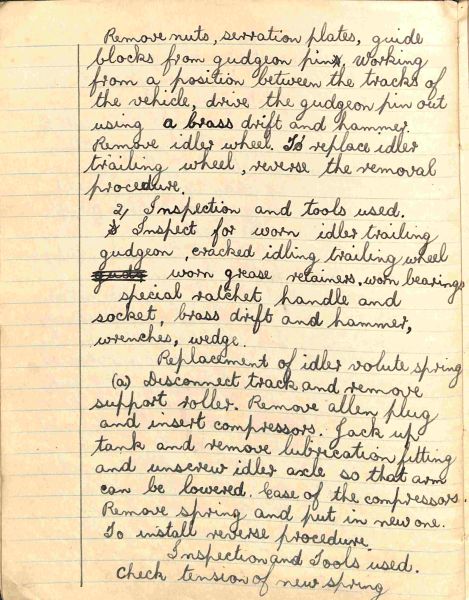 Remove nuts, serration plates, guide
blocks from gudgeon pins, working
from a position between the tracks of
the vehicle, drive the gudgeon pin out
using a brass drift and hammer.
Remove idler wheel. To replace idler
trailing wheel, reverse the removal
procedure.
2) Inspection and tools used.
Inspect for worn idler trailing
gudgeon, cracked idling trailing wheel
worn grease retainers, worn bearings
special ratchet handle and
socket, brass drift and hammer,
wrenches, wedge.
Replacement of idler volute spring
(a) Disconnect track and remove
support roller. Remove allen plug
and insert compressors. Jack up
tank and remove lubrication fitting
and unscrew idler axle so that arm
can be lowered. Ease of the compressors.
Remove spring and put in new one.
To install reverse procedure.
Inspection and Tools used.
Check tension of new spring